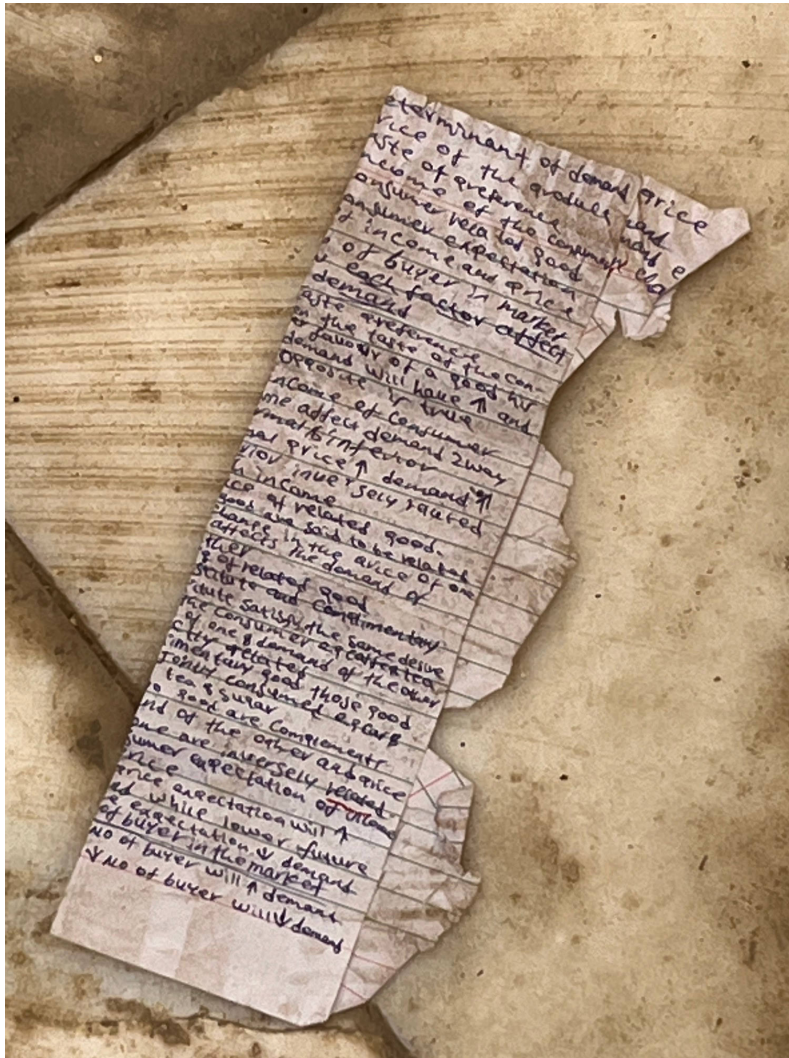 eterminant of demand price
rice of the product and
aste of preference and e
ncome of the consumer cha
onsumer related good
onsumer expectation
f income and price
of buyer in market
each factor affect
demand
aste preference
n the taste of the con-
er favour of a good hir
demand will have ↑ and
opposite is true
ncome of consumer
me affect demand 2way
rmal & inferior
al price ↑ demand ↑
rior inversely raured
h income
ce of related good.
good are said to be related
hange in the price of one
affects the demand of
ther
g of related good
stitute and complimentary
itute satisfy the same desire
the consumer eg coffee & tea
of one & demand of the other
ctly related
imentary good those good
Jointly consumed eg car &
tea & sugar
o good are complements
nd of the other and price
one are inversely related.
sumer expectation of income
rice
price expectation will ↑
nd while lower future
e expectation ↓ demand
of buyer in the market
No of buyer will ↑ demand
↓ No of buyer will ↓ demand